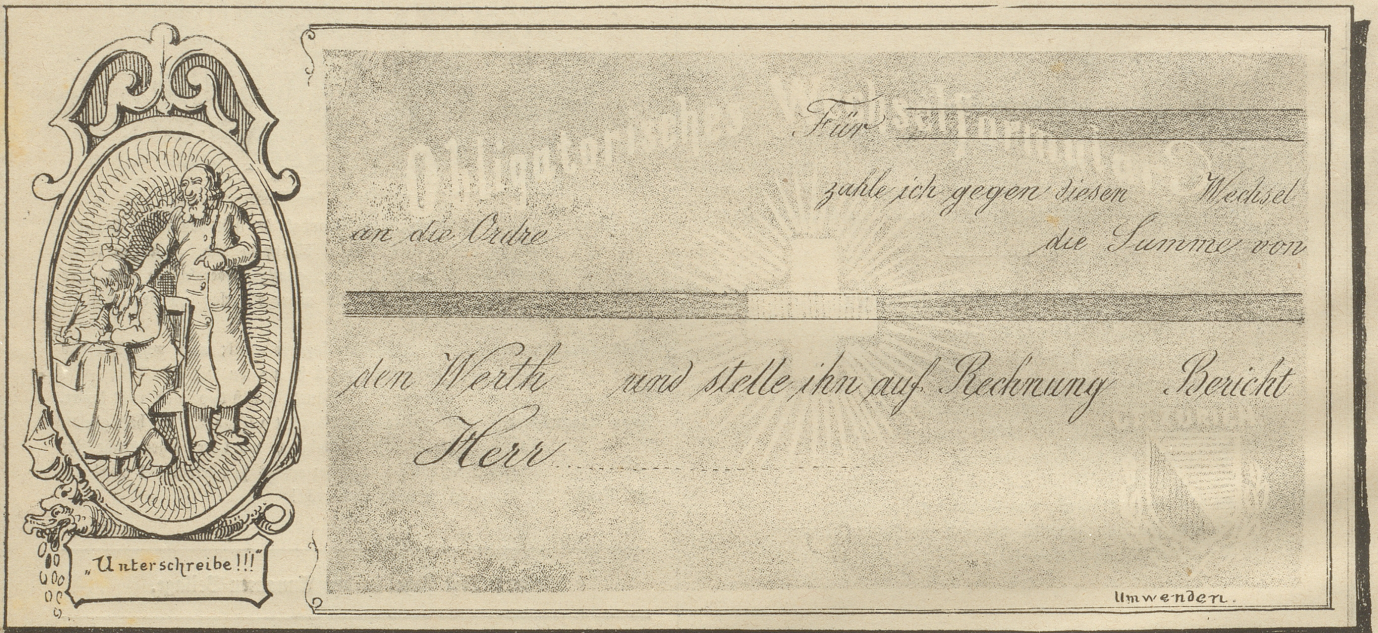 Obligatorisches Wechselformular
Für
zahle ich gegen diesen Wechsel
an die Ordre die Summe von
den Werth und stelle ihn auf Rechnung Bericht
Herr
„Unterschreibe!!!“
Umwenden.